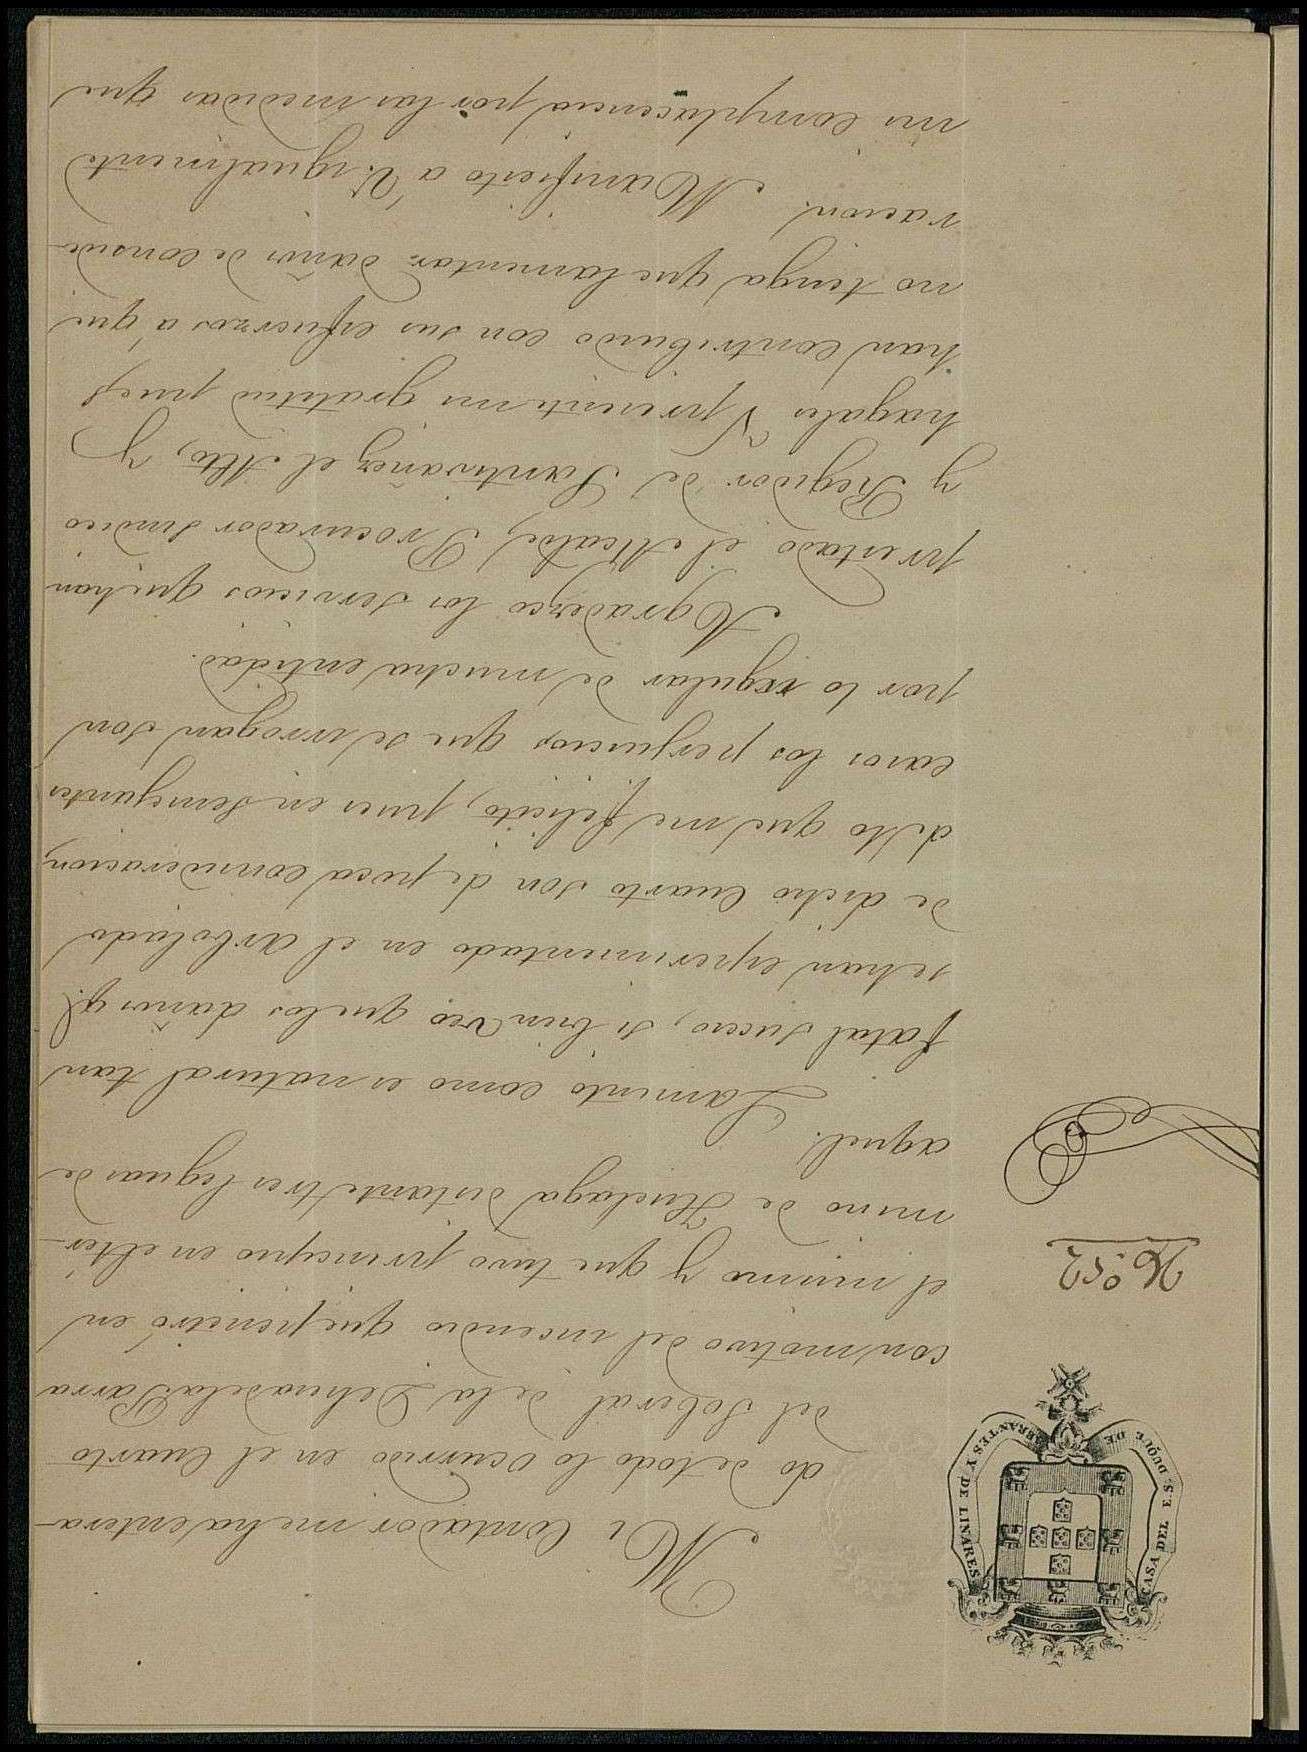 CASA DEL E.S. DUQUE DE ABRANTES Y DE LINARES.
Nº 52
Mi Contador me ha entera-
do de todo lo ocurrido en el Cuarto
del Soberal de la Dehesa de la Parra
con motivo del incendio que penetró en
el mismo y que tuvo principio en el tér-
mino de Huelaga distante tres leguas de
aquel.
Lamento como es natural tan
fatal suceso, si bien veo que los daños q.e
se han esperimentado en el arbolado
de dicho Cuarto son de poca consideracion,
de lo que me felicito, pues en semejantes
casos los perjuicios que se irrogan son
por lo regular de mucha entidad.
Agradezco los servicios que han
prestado el Alcalde, Procurador Sindico
y Regidor de Santivañez el Alto, y
hagales V presente mi gratitud pues
han contribuido con sus esfuerzos á que
no tenga que lamentar daños de conside-
racion.
Manifiesto á V. igualmente
mi complacencia por las medidas que